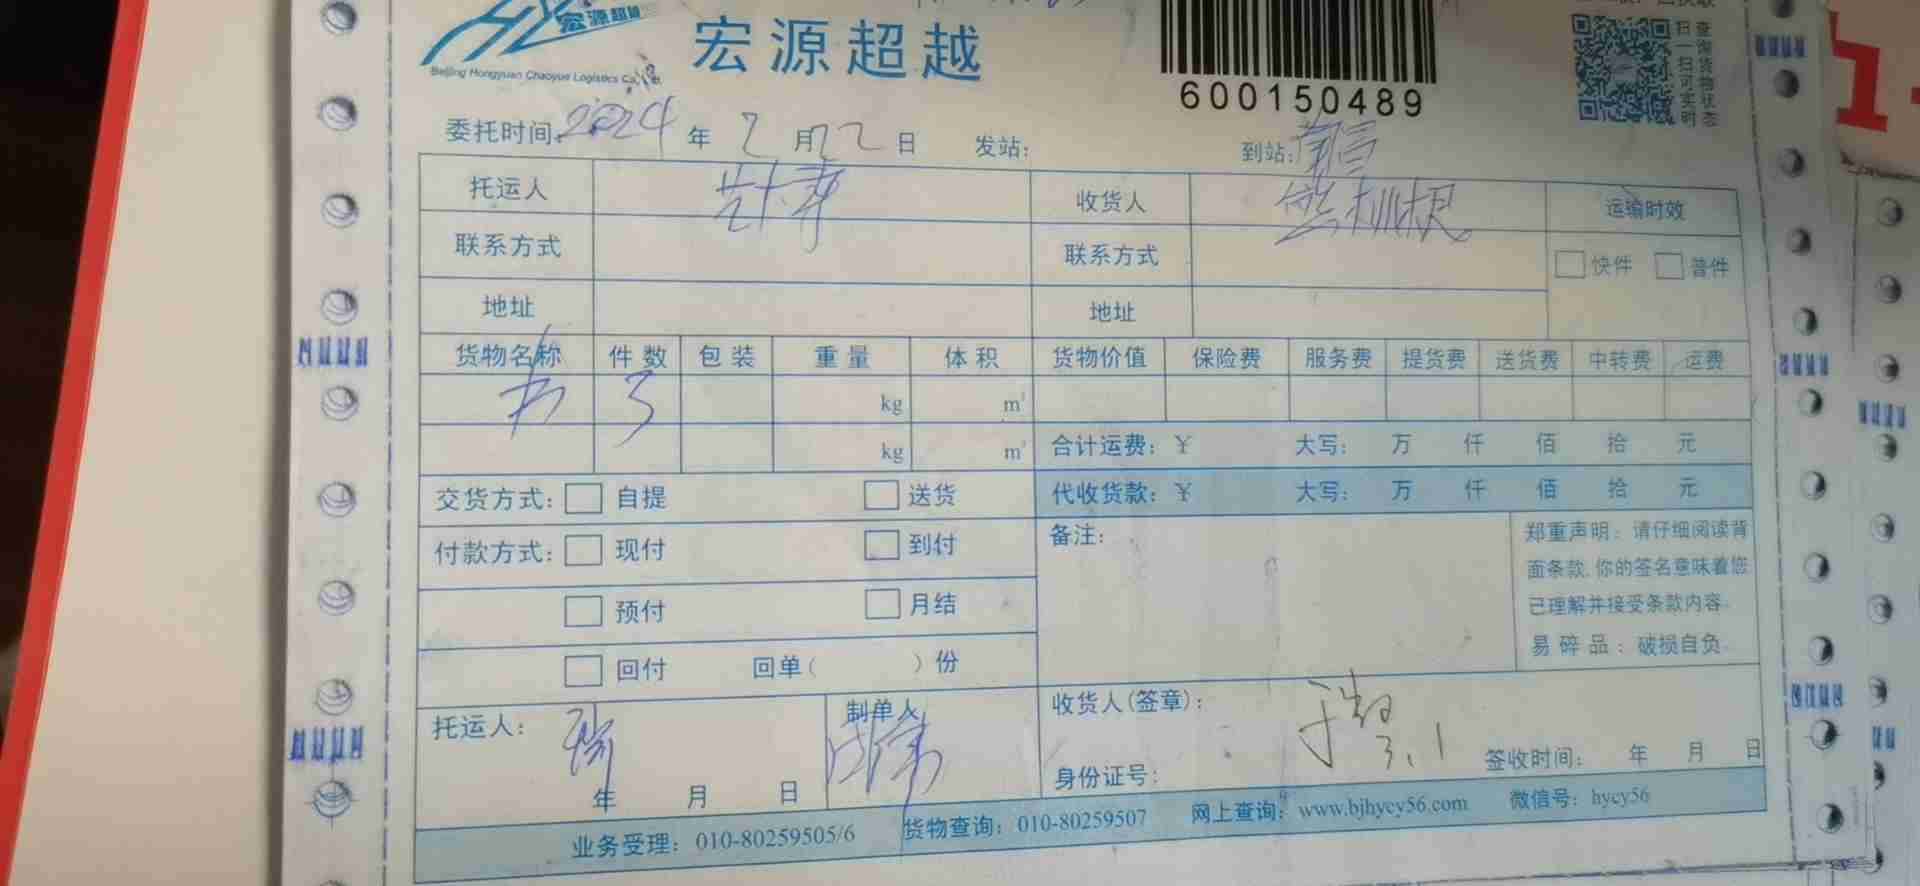 宏源超越
Beijing Hongyuan Chaoyue Logistics Co.,
宏源超越
600150489
扫一扫可实时
查询货物状态
委托时间: 2024 年 2 月 22 日 发站: 到站:
托运人 收货人 熊桃根 运输时效
联系方式 联系方式 快件 普件
地址 地址
货物名称 件数 包装 重量 体积 货物价值 保险费 服务费 提货费 送货费 中转费 运费
书 3 kg m³
kg m³ 合计运费: ¥ 大写: 万 仟 佰 拾 元
交货方式: 自提 送货 代收货款: ¥ 大写: 万 仟 佰 拾 元
付款方式: 现付 到付 备注:
预付 月结
回付 回单( )份
郑重声明: 请仔细阅读背
面条款,你的签名意味着您
已理解并接受条款内容.
易碎品: 破损自负.
托运人: 制单人 收货人(签章):
3.1
年 月 日 身份证号: 签收时间: 年 月 日
业务受理: 010-80259505/6 货物查询: 010-80259507 网上查询: www.bjhycy56.com 微信号: hycy56